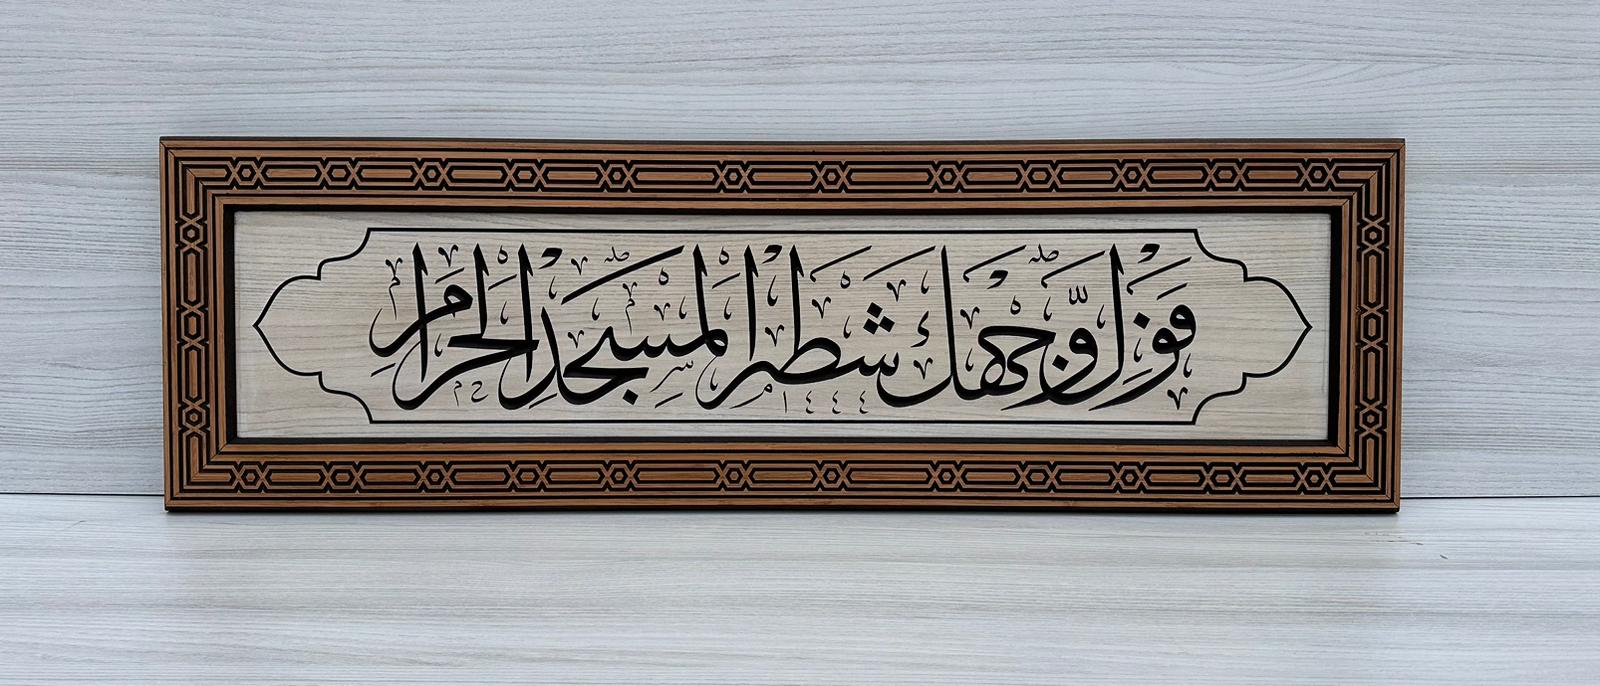 فَوَلِّ وَجْهَكَ شَطْرَ الْمَسْجِدِ الْحَرَامِ
١٤٤٤